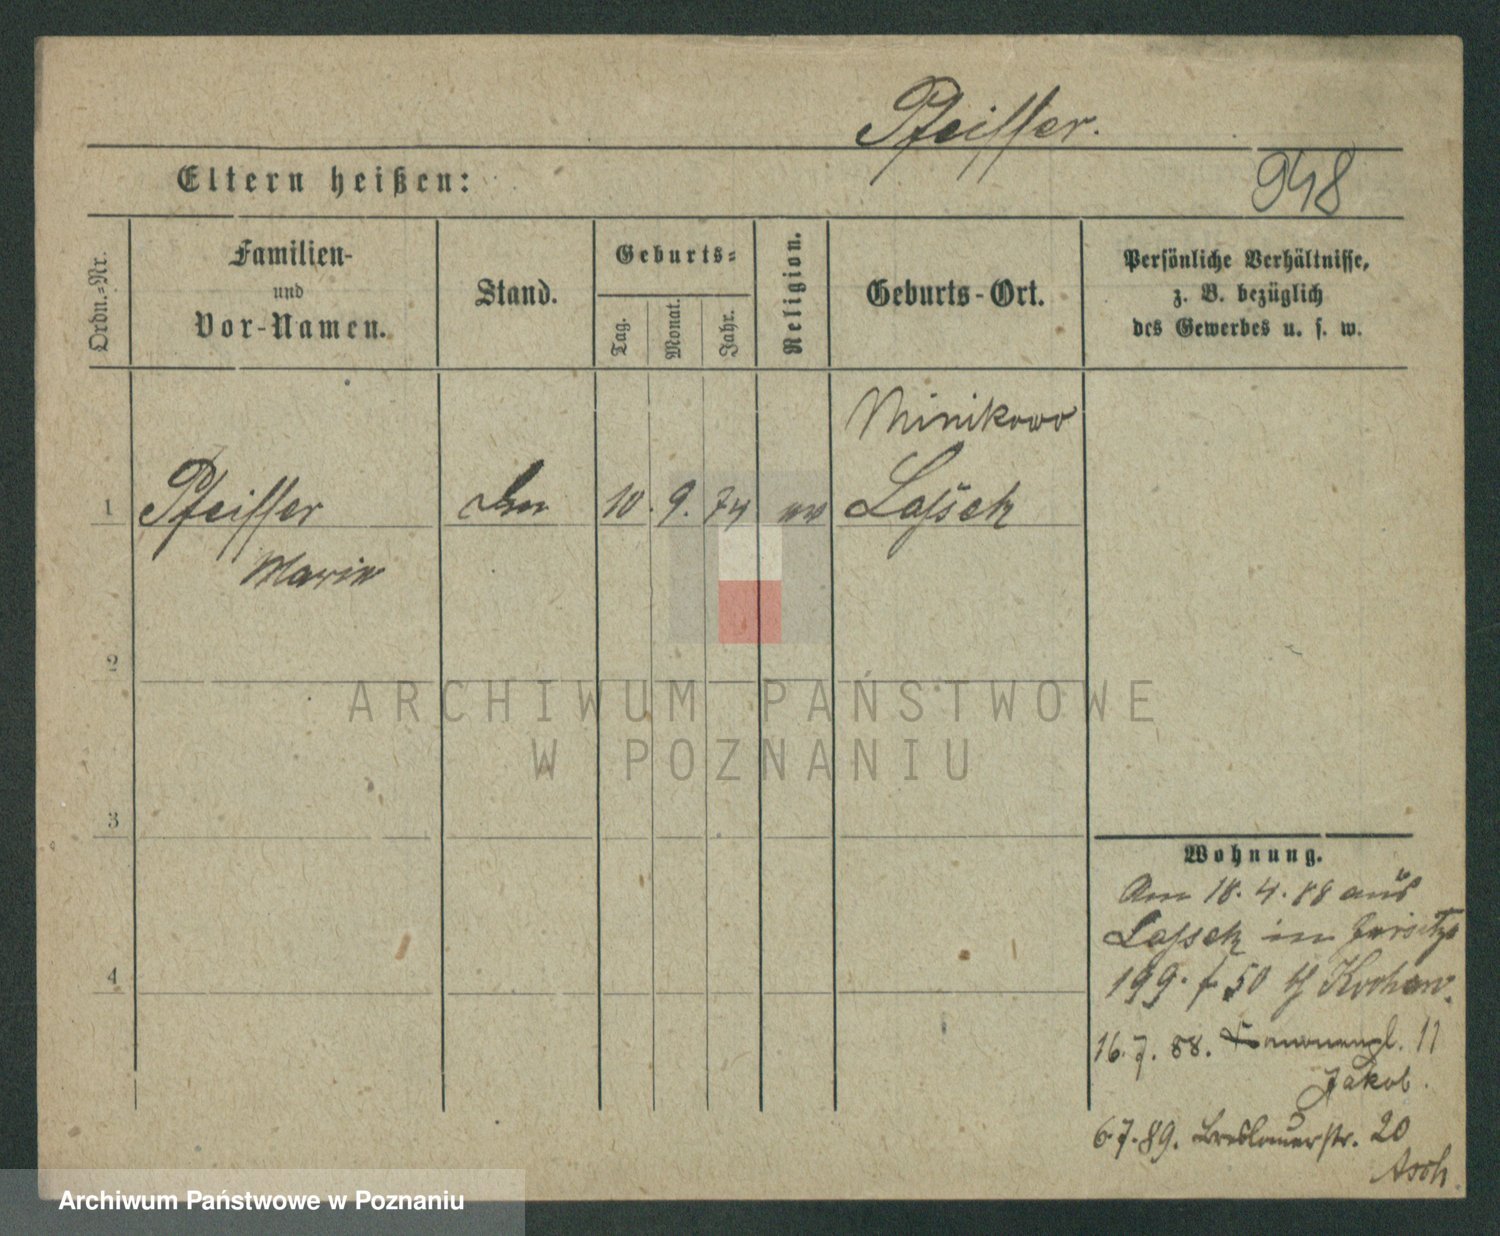 Pfeiffer.
Eltern heißen:
948
Ordn.-Nr.
Familien-
und
Vor-Namen.
Stand.
Geburts-
Tag.
Monat.
Jahr.
Religion.
Geburts-Ort.
Persönliche Verhältnisse,
z. B. bezüglich
des Gewerbes u. s. w.
Minikowo
1 Pfeiffer 10. 9. 74 ev Lassek
Marie
2
3
4
Wohnung.
Am 18. 4. 88 aus
Lassek in Jersitz
199. f 50
16. 7. 88. Kanonenpl. 11
Jakob.
6. 7. 89. Breslauerstr. 20
Asch.
ARCHIWUM PAŃSTWOWE
W POZNANIU
Archiwum Państwowe w Poznaniu